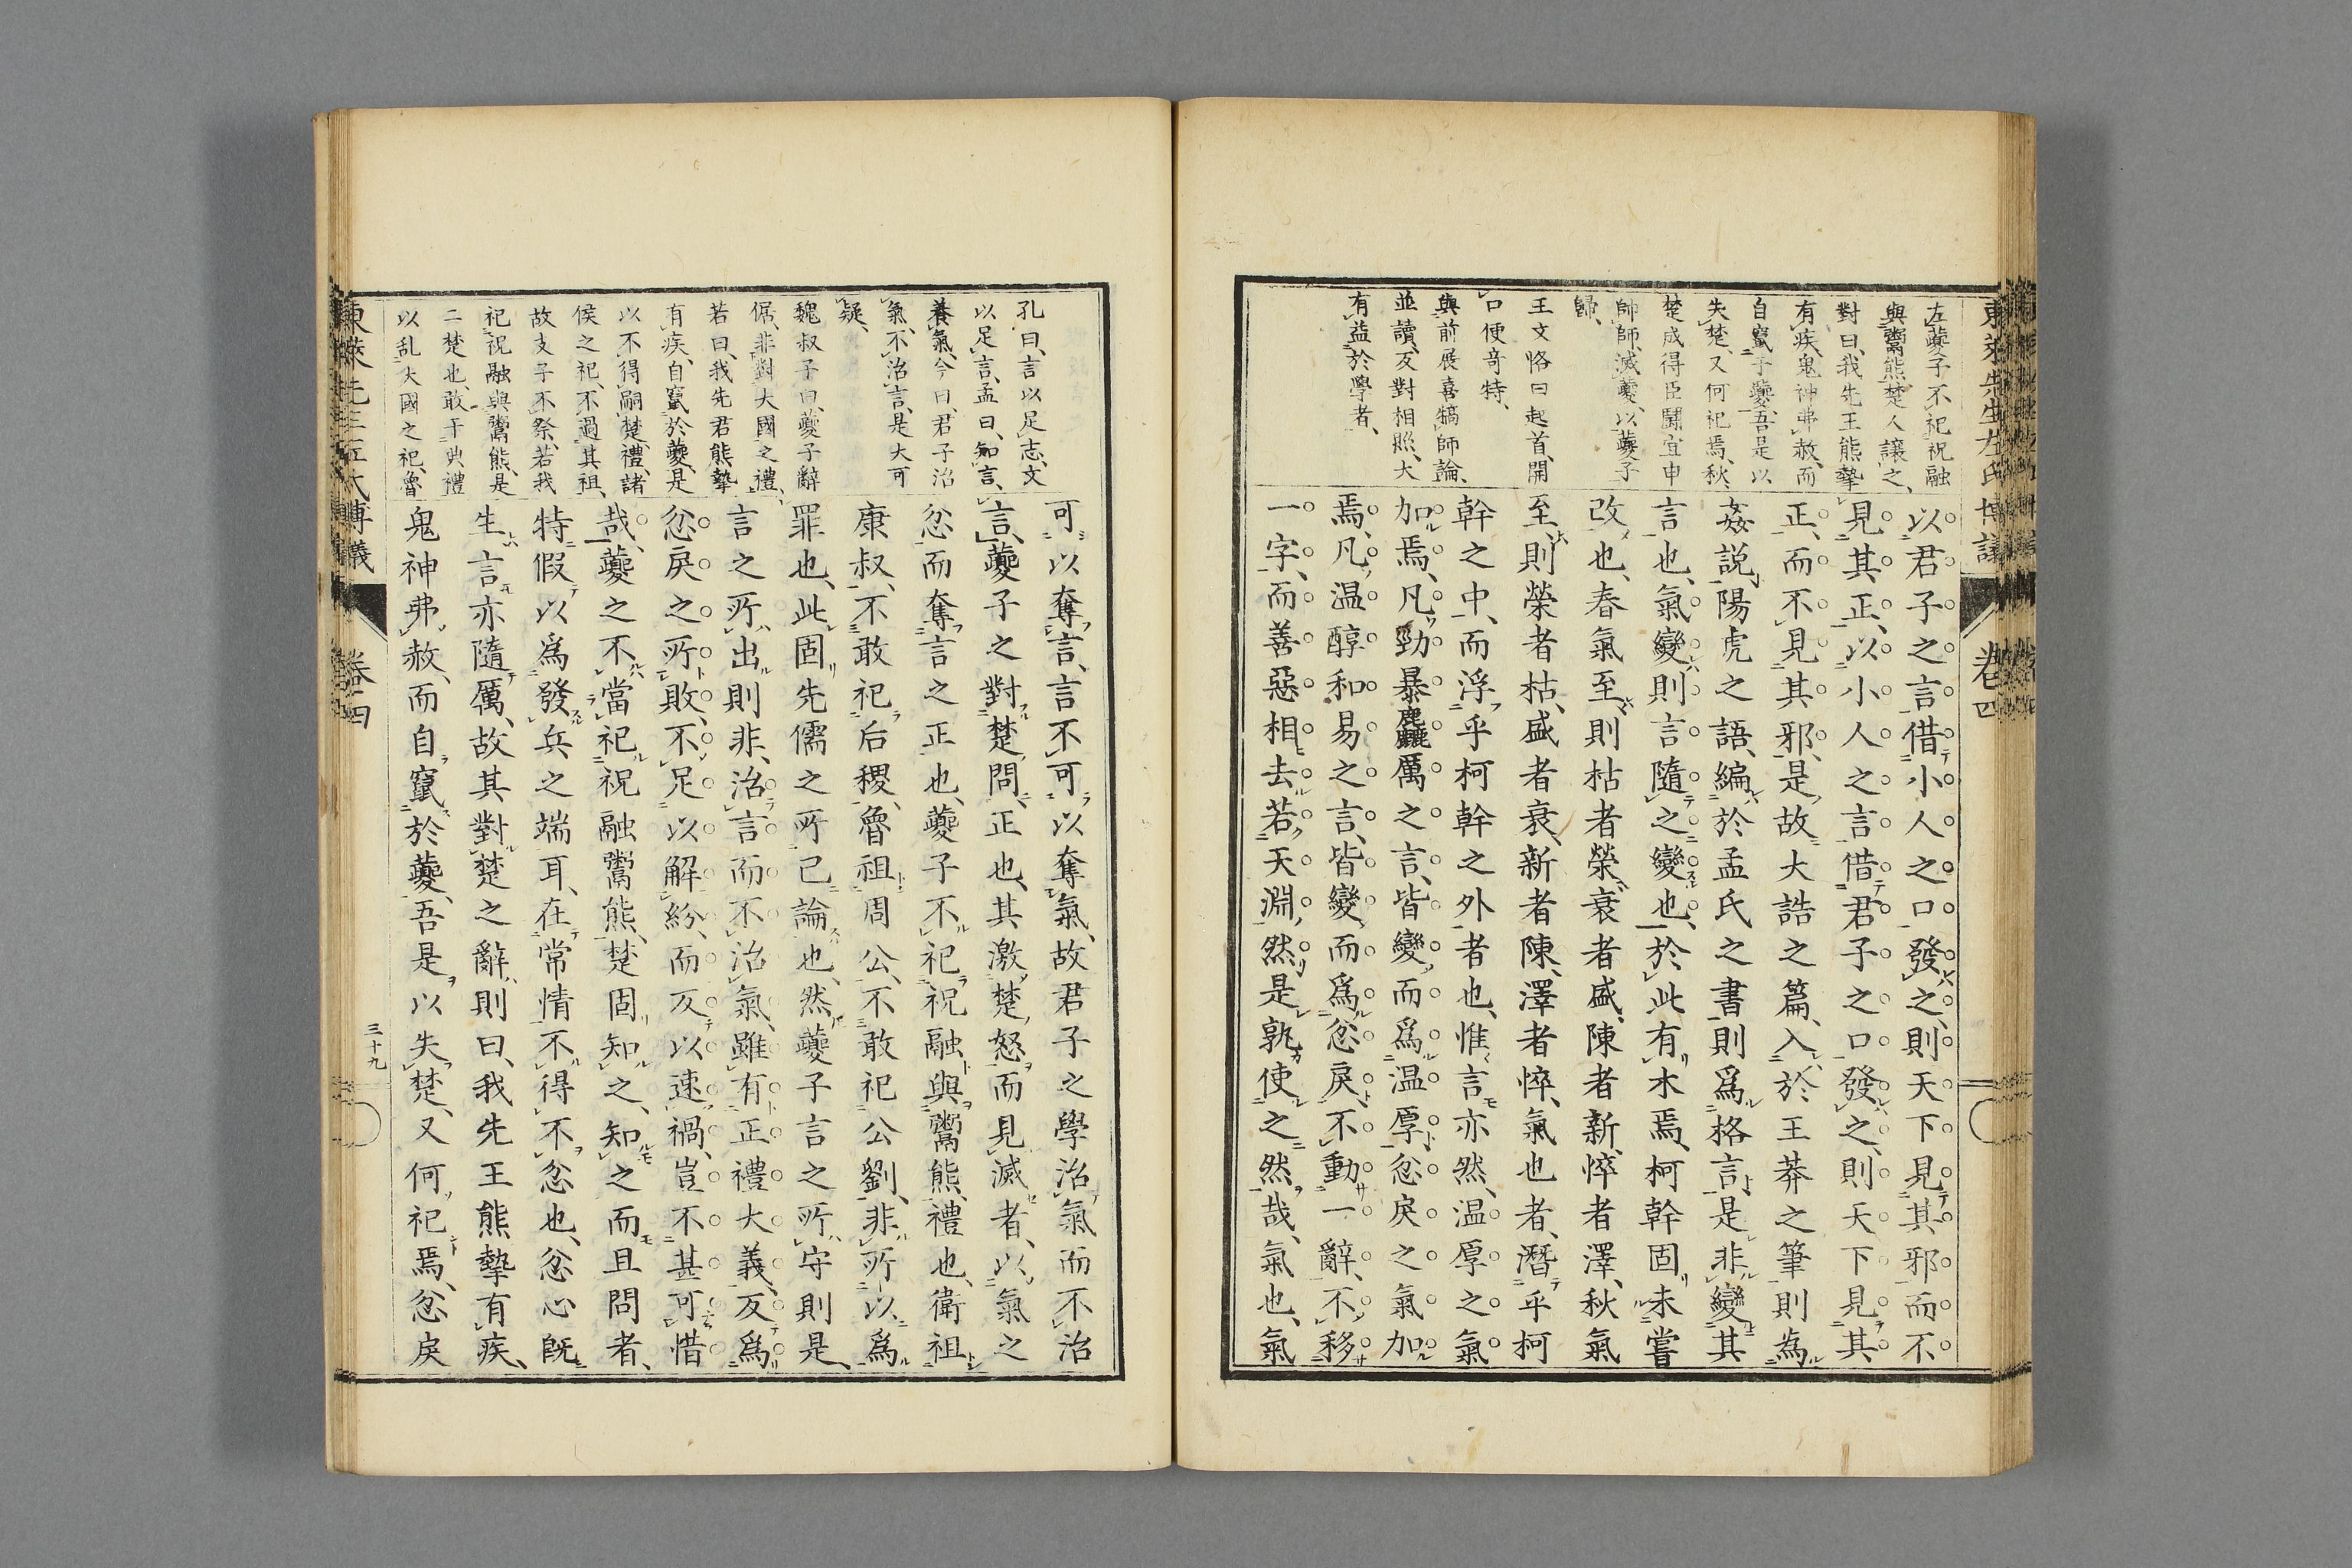 東萊先生左氏博議
卷四
左夔子不祀祝融
與鬻熊楚人讓之、
對曰、我先王熊摯
有疾、鬼神弗赦、而
自竄于夔、吾是以
失楚、又何祀焉、秋、
楚成得臣鬪宜申
帥師、滅夔、以夔子
歸、
王文恪曰起首、開
口便奇特、
與前展喜犒師論、
並讀、反對相照、大
有益於學者、
以君子之言借小人之口發之、則天下見其邪而不
見其正、以小人之言借君子之口發之、則天下見其
正、而不見其邪、是故大誥之篇、入於王莽之筆則為
姦說、陽虎之語、編於孟氏之書則爲格言、是非變其
言也、氣變則言隨之變也、於此有木焉、柯幹固未嘗
改也、春氣至則枯者榮、衰者盛、陳者新、悴者澤、秋氣
至、則榮者枯、盛者衰、新者陳、澤者悴、氣也者、潛乎柯
幹之中、而浮乎柯幹之外者也、惟言亦然、温厚之氣
加焉、凡勁暴麤厲之言、皆變而爲温厚、忿戾之氣加
焉、凡温醇和易之言、皆變、而爲忿戾、不動一辭、不移
一字、而善惡相去若天淵、然是孰使之然哉、氣也、氣
孔曰、言以足志、文
以足言、孟曰、知言、
養氣、今曰、君子治
氣、不治言、是大可
疑、
魏叔子曰、夔子辭
倨、非對大國之禮、
若曰、我先君熊摯
有疾、自竄於夔、是
以不得嗣楚、禮、諸
侯之祀、不過其祖、
故支子不祭、若我
祀祝融與鬻熊、是
二楚也、敢干典禮
以乱大國之祀、魯
可以奪言、言不可以奪氣、故君子之學治氣而不治
言、夔子之對楚問、正也、其激楚怒而見滅者、以氣之
忿而奪言之正也、夔子不祀祝融與鬻熊、禮也、衛祖
康叔、不敢祀后稷、魯祖周公、不敢祀公劉、非所以爲
罪也、此固先儒之所已論也、然夔子言之所守則是、
言之所出則非、治言而不治氣、雖有正禮大義、反爲
忿戾之所敗、不足以解紛、而反以速禍、豈不甚可惜
哉、夔之不當祀祝融鬻熊、楚固知之、知之而且問者、
特假以爲發兵之端耳、在常情不得不忿也、忿心既
生、言亦隨厲、故其對楚之辭、則曰、我先王熊摯有疾、
鬼神弗赦、而自竄於夔、吾是以失楚、又何祀焉、忿戾
東萊先生左氏博議
卷四
三十九